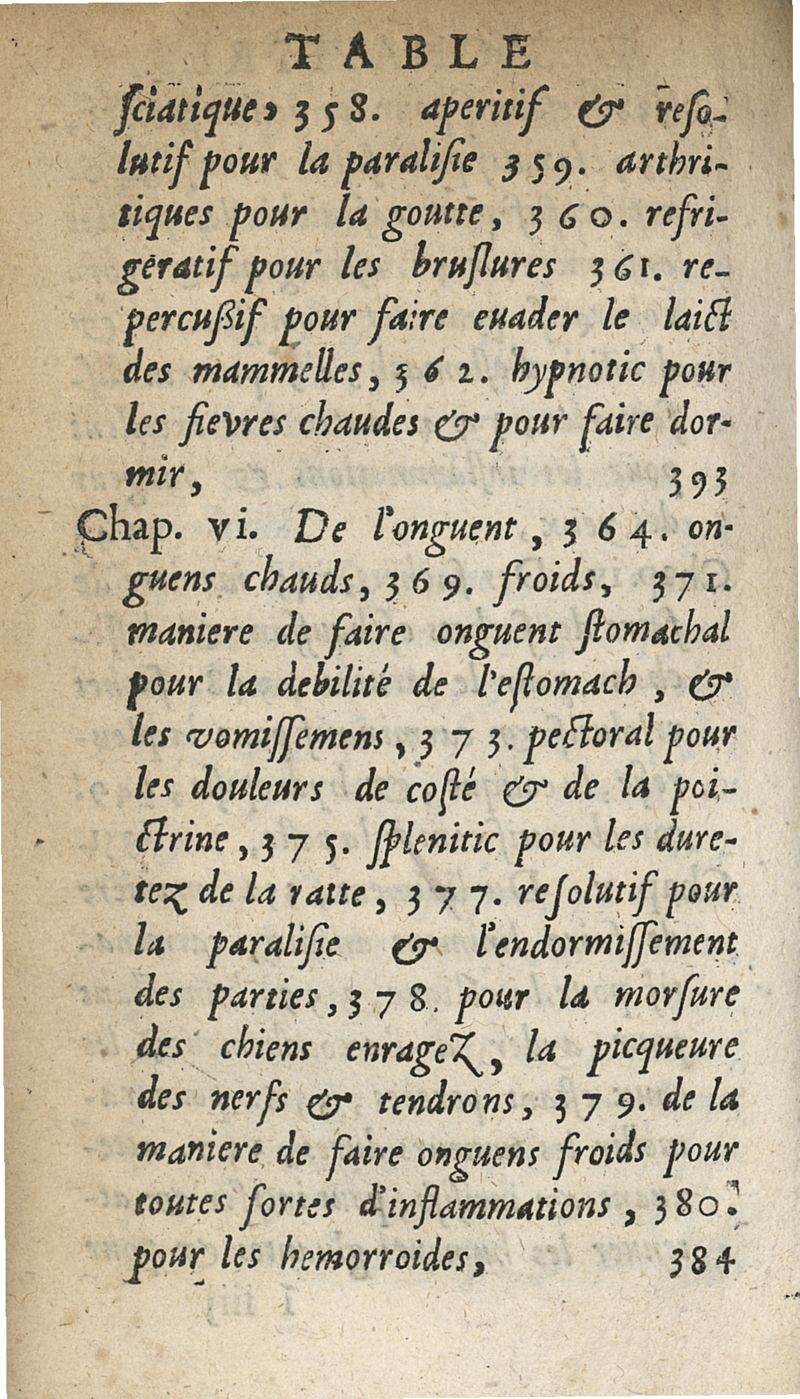 TABLE
ſciatique, 358. aperitif & reſo-
lutif pour la paraliſie 359. arthri-
tiques pour la goutte, 360. refri-
geratif pour les bruſlures 361. re-
percußif pour faire euader le laict
des mammelles, 362. hypnotic pour
les fievres chaudes & pour faire dor-
mir, 393
Chap. vi. De l'onguent, 364. on-
guens chauds, 369. froids, 371.
maniere de faire onguent ſtomachal
pour la debilité de l'eſtomach, &
les vomiſſemens, 373. pectoral pour
les douleurs de coſté & de la poi-
ctrine, 375. ſplenitic pour les dure-
tez de la ratte, 377. reſolutif pour
la paraliſie & l'endormiſſement
des parties, 378. pour la morſure
des chiens enragez, la picqueure
des nerfs & tendrons, 379. de la
maniere de faire onguens froids pour
toutes ſortes d'inflammations, 380.
pour les hemorroides, 384